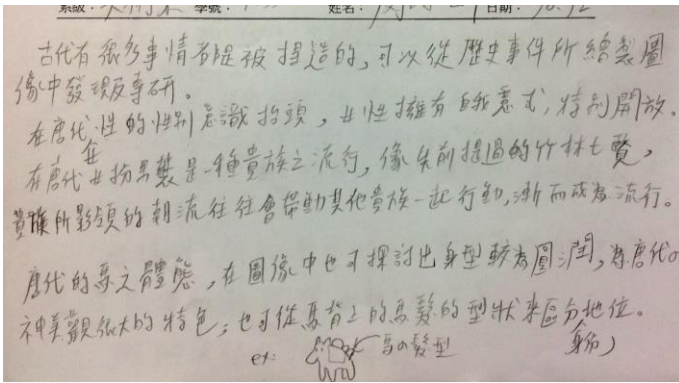 系級: 學號: 姓名: 日期:
古代有很多事情都是被捏造的,可以從歷史事件所繪製圖
像中發現專研。
在唐代,女性的性別意識抬頭,女性擁有自我意式,特別開放。
在唐代女扮男裝是一種貴族之流行,像先前提過的竹林七賢,
貴族所影領的朝流往往會帶動其他貴族一起行動,漸而成為流行。
唐代的馬之體態,在圖像中也可探討出身型較為圓潤,為唐代の
神美觀很大的特色;也可從馬背上的馬髮的型狀來區分地位。
ex: 馬の髮型 身份)